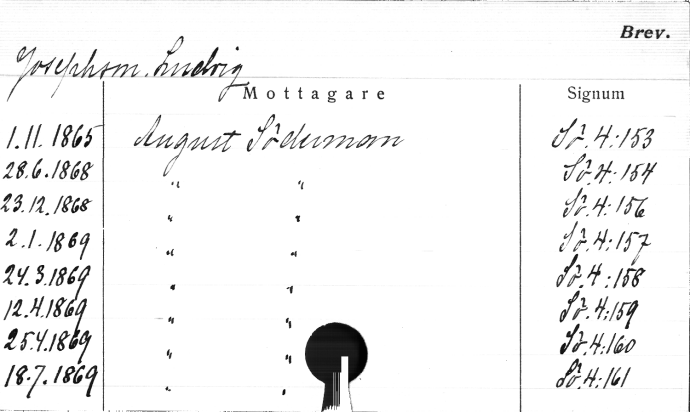 Brev.
Josephson, Ludvig
Mottagare Signum
1.11.1865 August Söderman Sö. 4:153
28.6.1868 " " Sö. 4:154
23.12.1868 " " Sö. 4:156
2.1.1869 " " Sö. 4:157
24.3.1869 " " Sö. 4:158
12.4.1869 " " Sö. 4:159
25.4.1869 " " Sö. 4:160
18.7.1869 " " Sö. 4:161